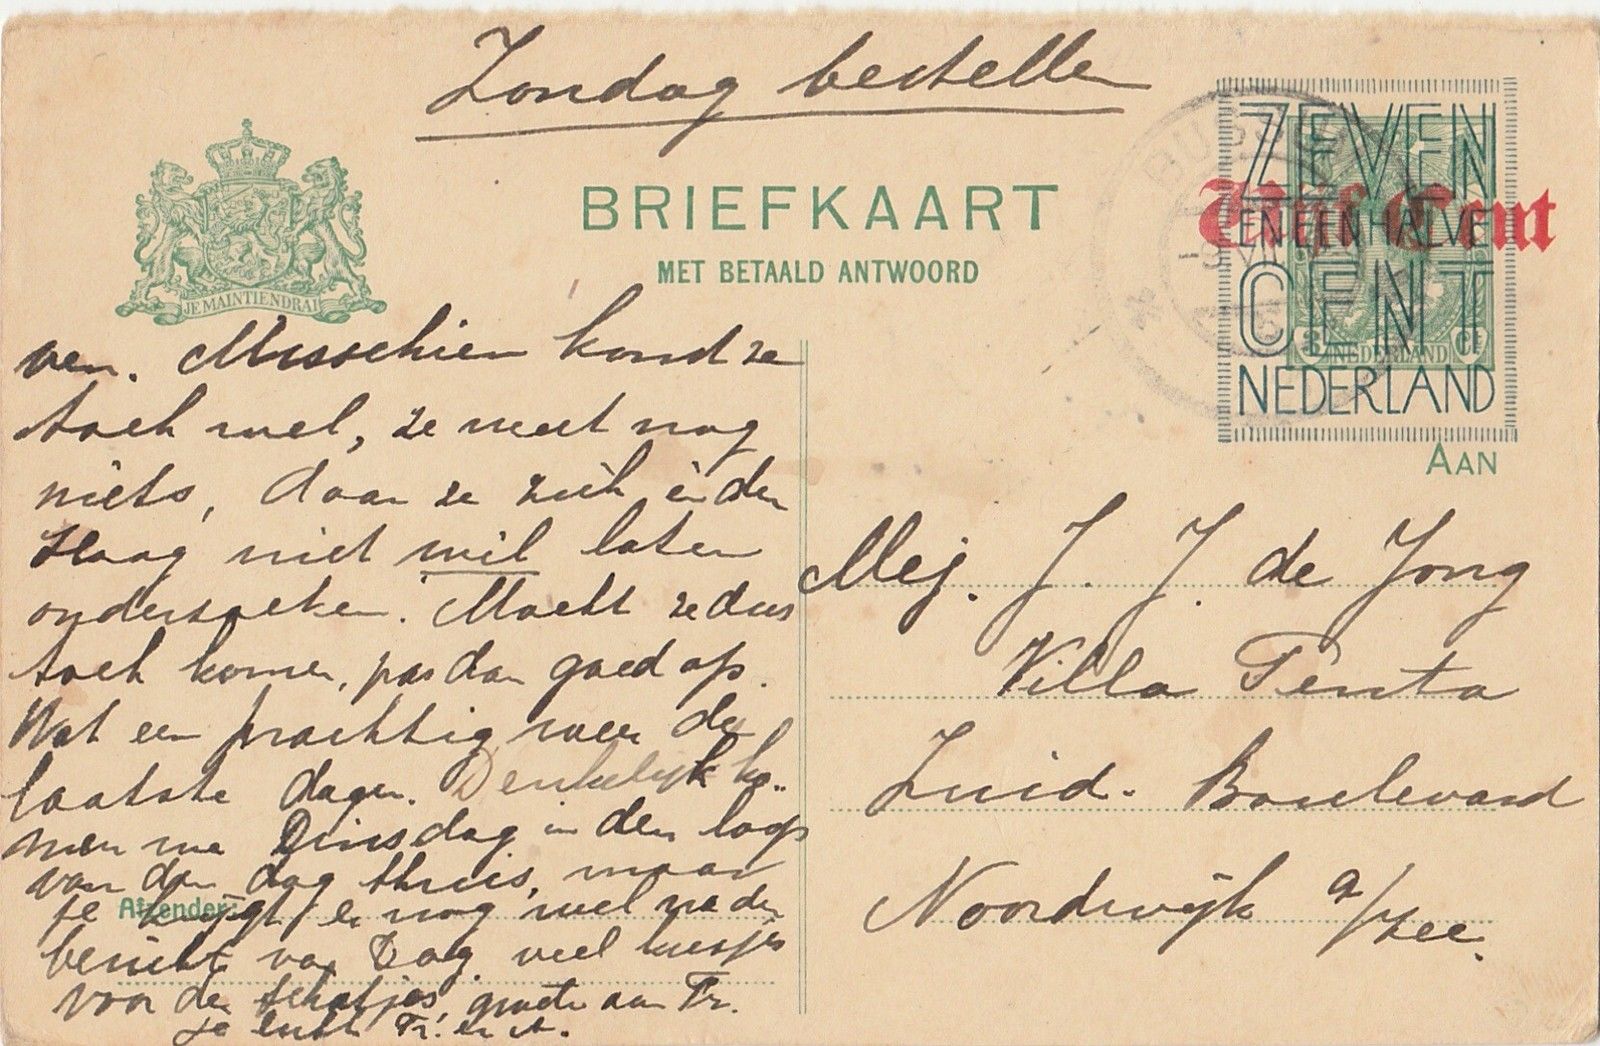 Zondag bestellen
BRIEFKAART
MET BETAALD ANTWOORD
JE MAINTIENDRAI
BUSSUM
Vijf Cent
ZEVEN
EN EEN HALVE
CENT
NEDERLAND
NEDERLAND
AAN
ven. Misschien kond ze
toch wel, ze weet nog
niets, daar ze zich in den
Haag niet wil laten
onderzoeken. Mocht ze dus
toch komen, pas dan goed op.
Wat een prachtig weer de
laatste dagen. Denkelijk ko-
men we Dinsdag in den loop
van den dag thuis, maar
je krijgt er nog wel nader
bericht van. Dag veel kusjes
voor de schatjes, groete aan Tr.
je
Afzender:
Mej. J. J. de Jong
Villa Penta
Zuid-Boulevard
Noordwijk a/zee.